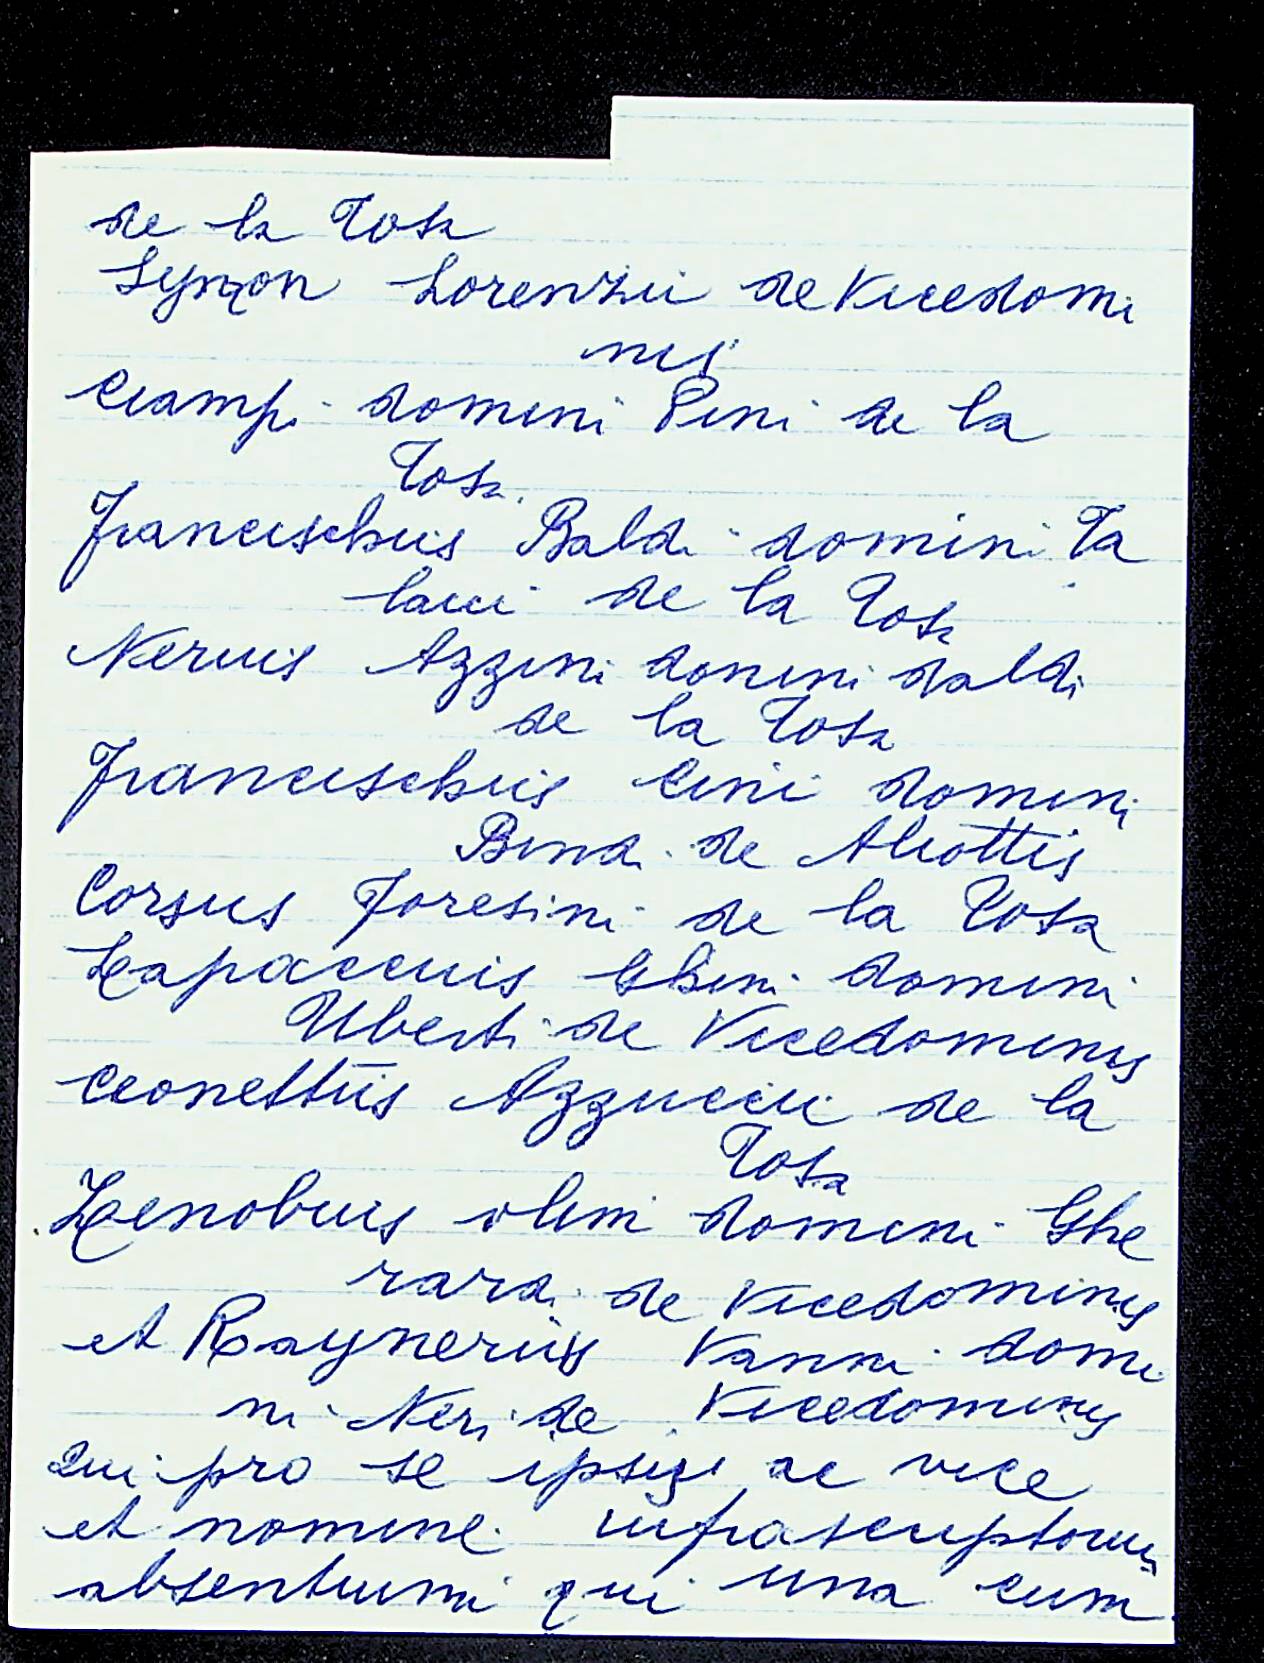 de la Tosa
Symon Lorenzii de Vicedomi
nis
Ciampi domini Pini de la
Tosa
Francischus Baldi domini Ta
lani de la Tosa
Nerius Azzini domini Baldi
de la Tosa
Francischus Cini domini
Bindi de Aliottis
Corsus Foresini de la Tosa
Lapaccius Ghini domini
Uberti de Vicedominis
Cionettus Azzuccii de la
Tosa
Zenobius olim domini Ghe
rardi de Vicedominis
et Raynerius Vanni domi
ni Neri de Vicedominis
qui pro se ipsis ac vice
et nomine infrascriptorum
absentium qui una cum